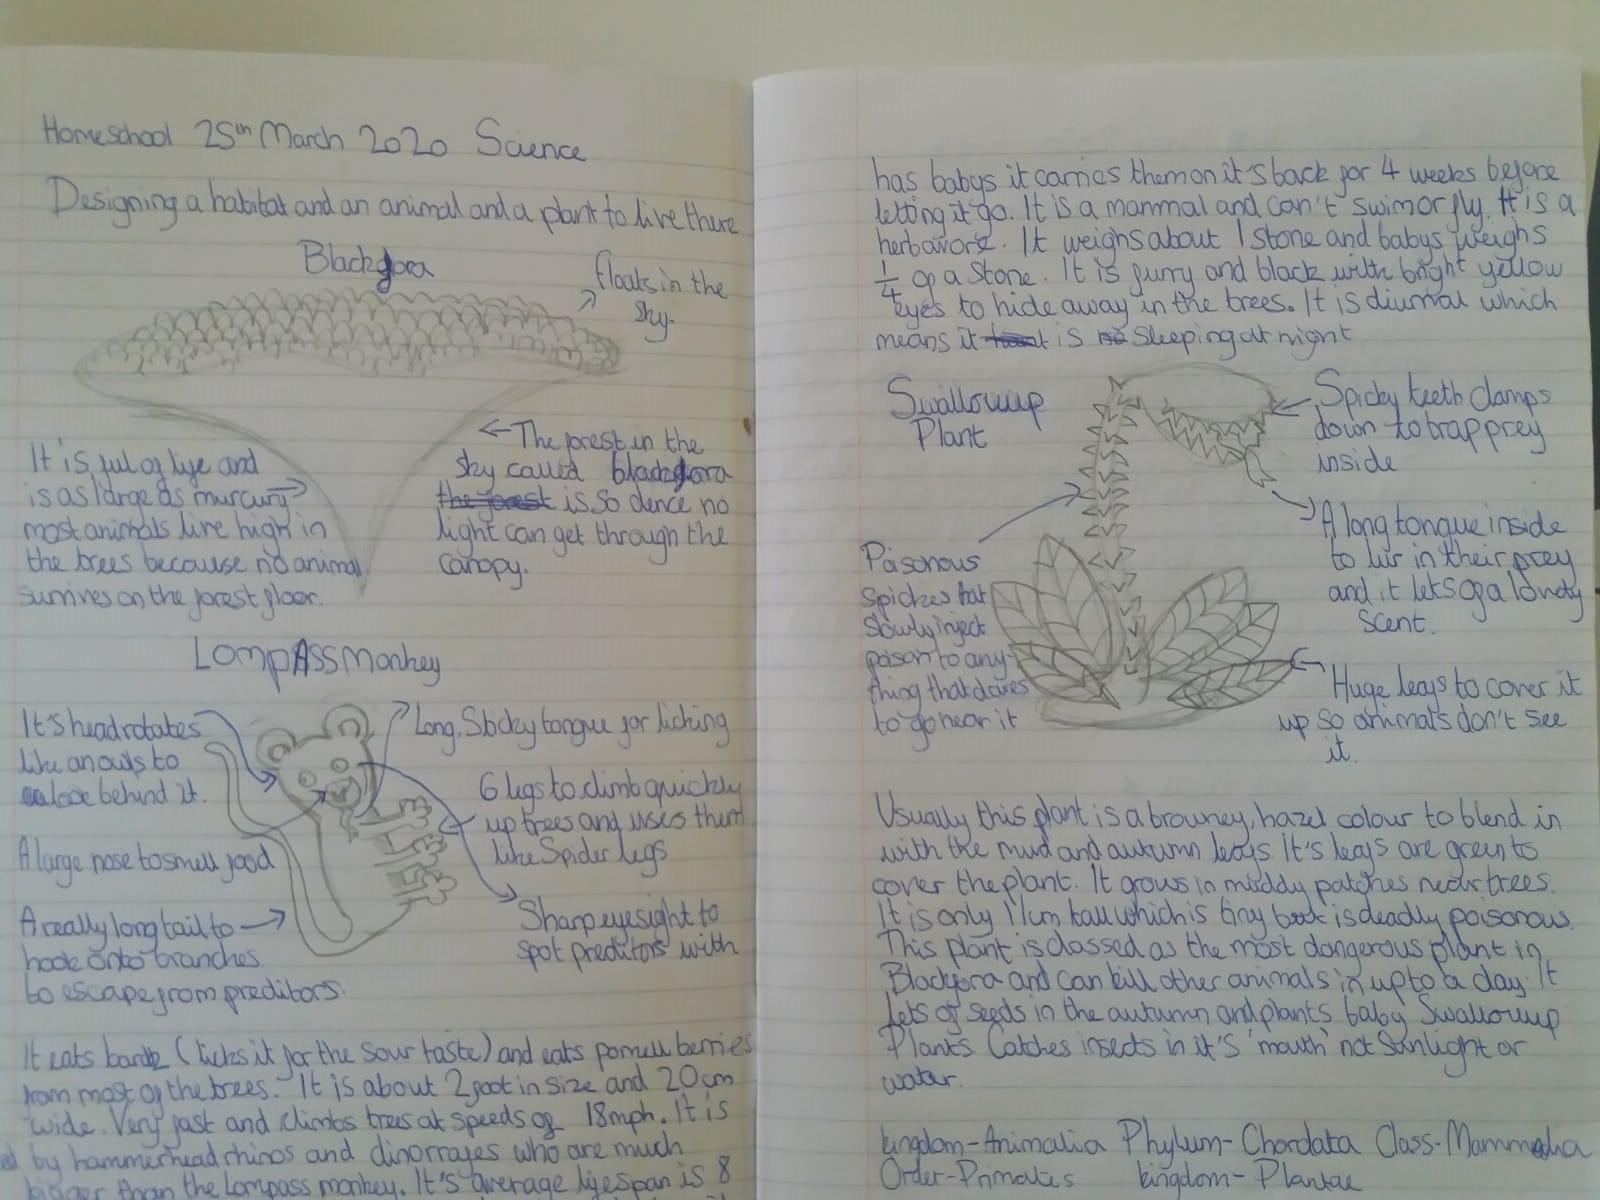 Homeschool 25th March 2020 Science
Designing a habitat and an animal and a plant to live there
Blackfora
floats in the
sky.
It is ful of life and
is as large as murcury
most animals live high in
the trees becouse no animal
survives on the forest floor.
The forest in the
sky called blackfora
the forest is so dence no
light can get through the
canopy.
LompAss Monkey
It's head rotates
like an owls to
look behind it.
A large nose to smell food
A really long tail to
hook onto branches
to escape from preditors.
Long, Sticky tongue for licking
6 legs to climb quickly
up trees and uses them
like Spider legs
Sharp eyesight to
spot preditors with
It eats bark (licks it for the sour taste) and eats pomell berries
from most of the trees. It is about 2 foot in size and 20cm
wide. Very fast and climbs trees at speeds of 18mph. It is
by hammerhead rhinos and dinorrages who are much
bigger than the Lompass monkey. It's average lifespan is 8
has babys it carries them on it's back for 4 weeks before
letting it go. It is a mammal and can't swim or fly. It is a
herbavore. It weighs about 1 stone and babys weighs
1/4 of a Stone. It is furry and black with bright yellow
eyes to hide away in the trees. It is diurnal which
means it is sleeping at night
Swallowup
Plant
Spicky teeth clamps
down to trap prey
inside
A long tongue inside
to lur in their prey
and it lets of a lovely
scent.
Poisonous
Spickes that
slowly inject
poison to any-
thing that dares
to go near it
Huge leafs to cover it
up so animals don't see
it.
Usually this plant is a browney, hazel colour to blend in
with the mud and autumn leafs. It's leafs are green to
cover the plant. It grows in muddy patches near trees.
It is only 11cm tall which is tiny but is deadly poisonous.
This plant is classed as the most dangerous plant in
Blackfora and can kill other animals in up to a day. It
lets of seeds in the autumn and plants baby Swallowup
Plants. Catches insects in it's 'mouth' not Sunlight or
water.
kingdom-Animalia Phylum-Chordata Class-Mammalia
Order-Primates kingdom-Plantae